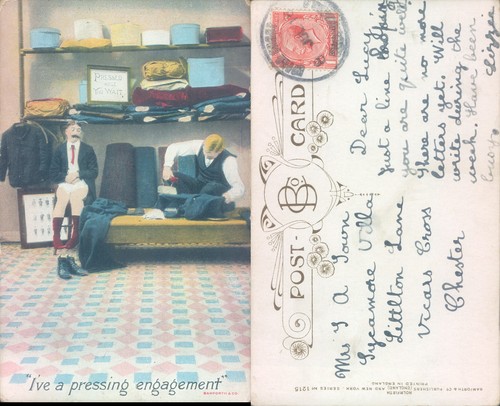 PRESSED
WHILE
YOU WAIT
"I've a pressing engagement"
BAMFORTH & CO.
Dear Lucy
Just a line hoping
you are quite well
there are no more
letters yet. Will
write during the
week. Have been
busy
Lizzie
POST-CARD
B Co
Mrs J A Town
Sycamore Villa
Littlton Lane
Vicars Cross
Chester
BAMFORTH & CO. PUBLISHERS
HOLMFIRTH (ENGLAND) AND NEW YORK SERIES Nº 1015
PRINTED IN ENGLAND